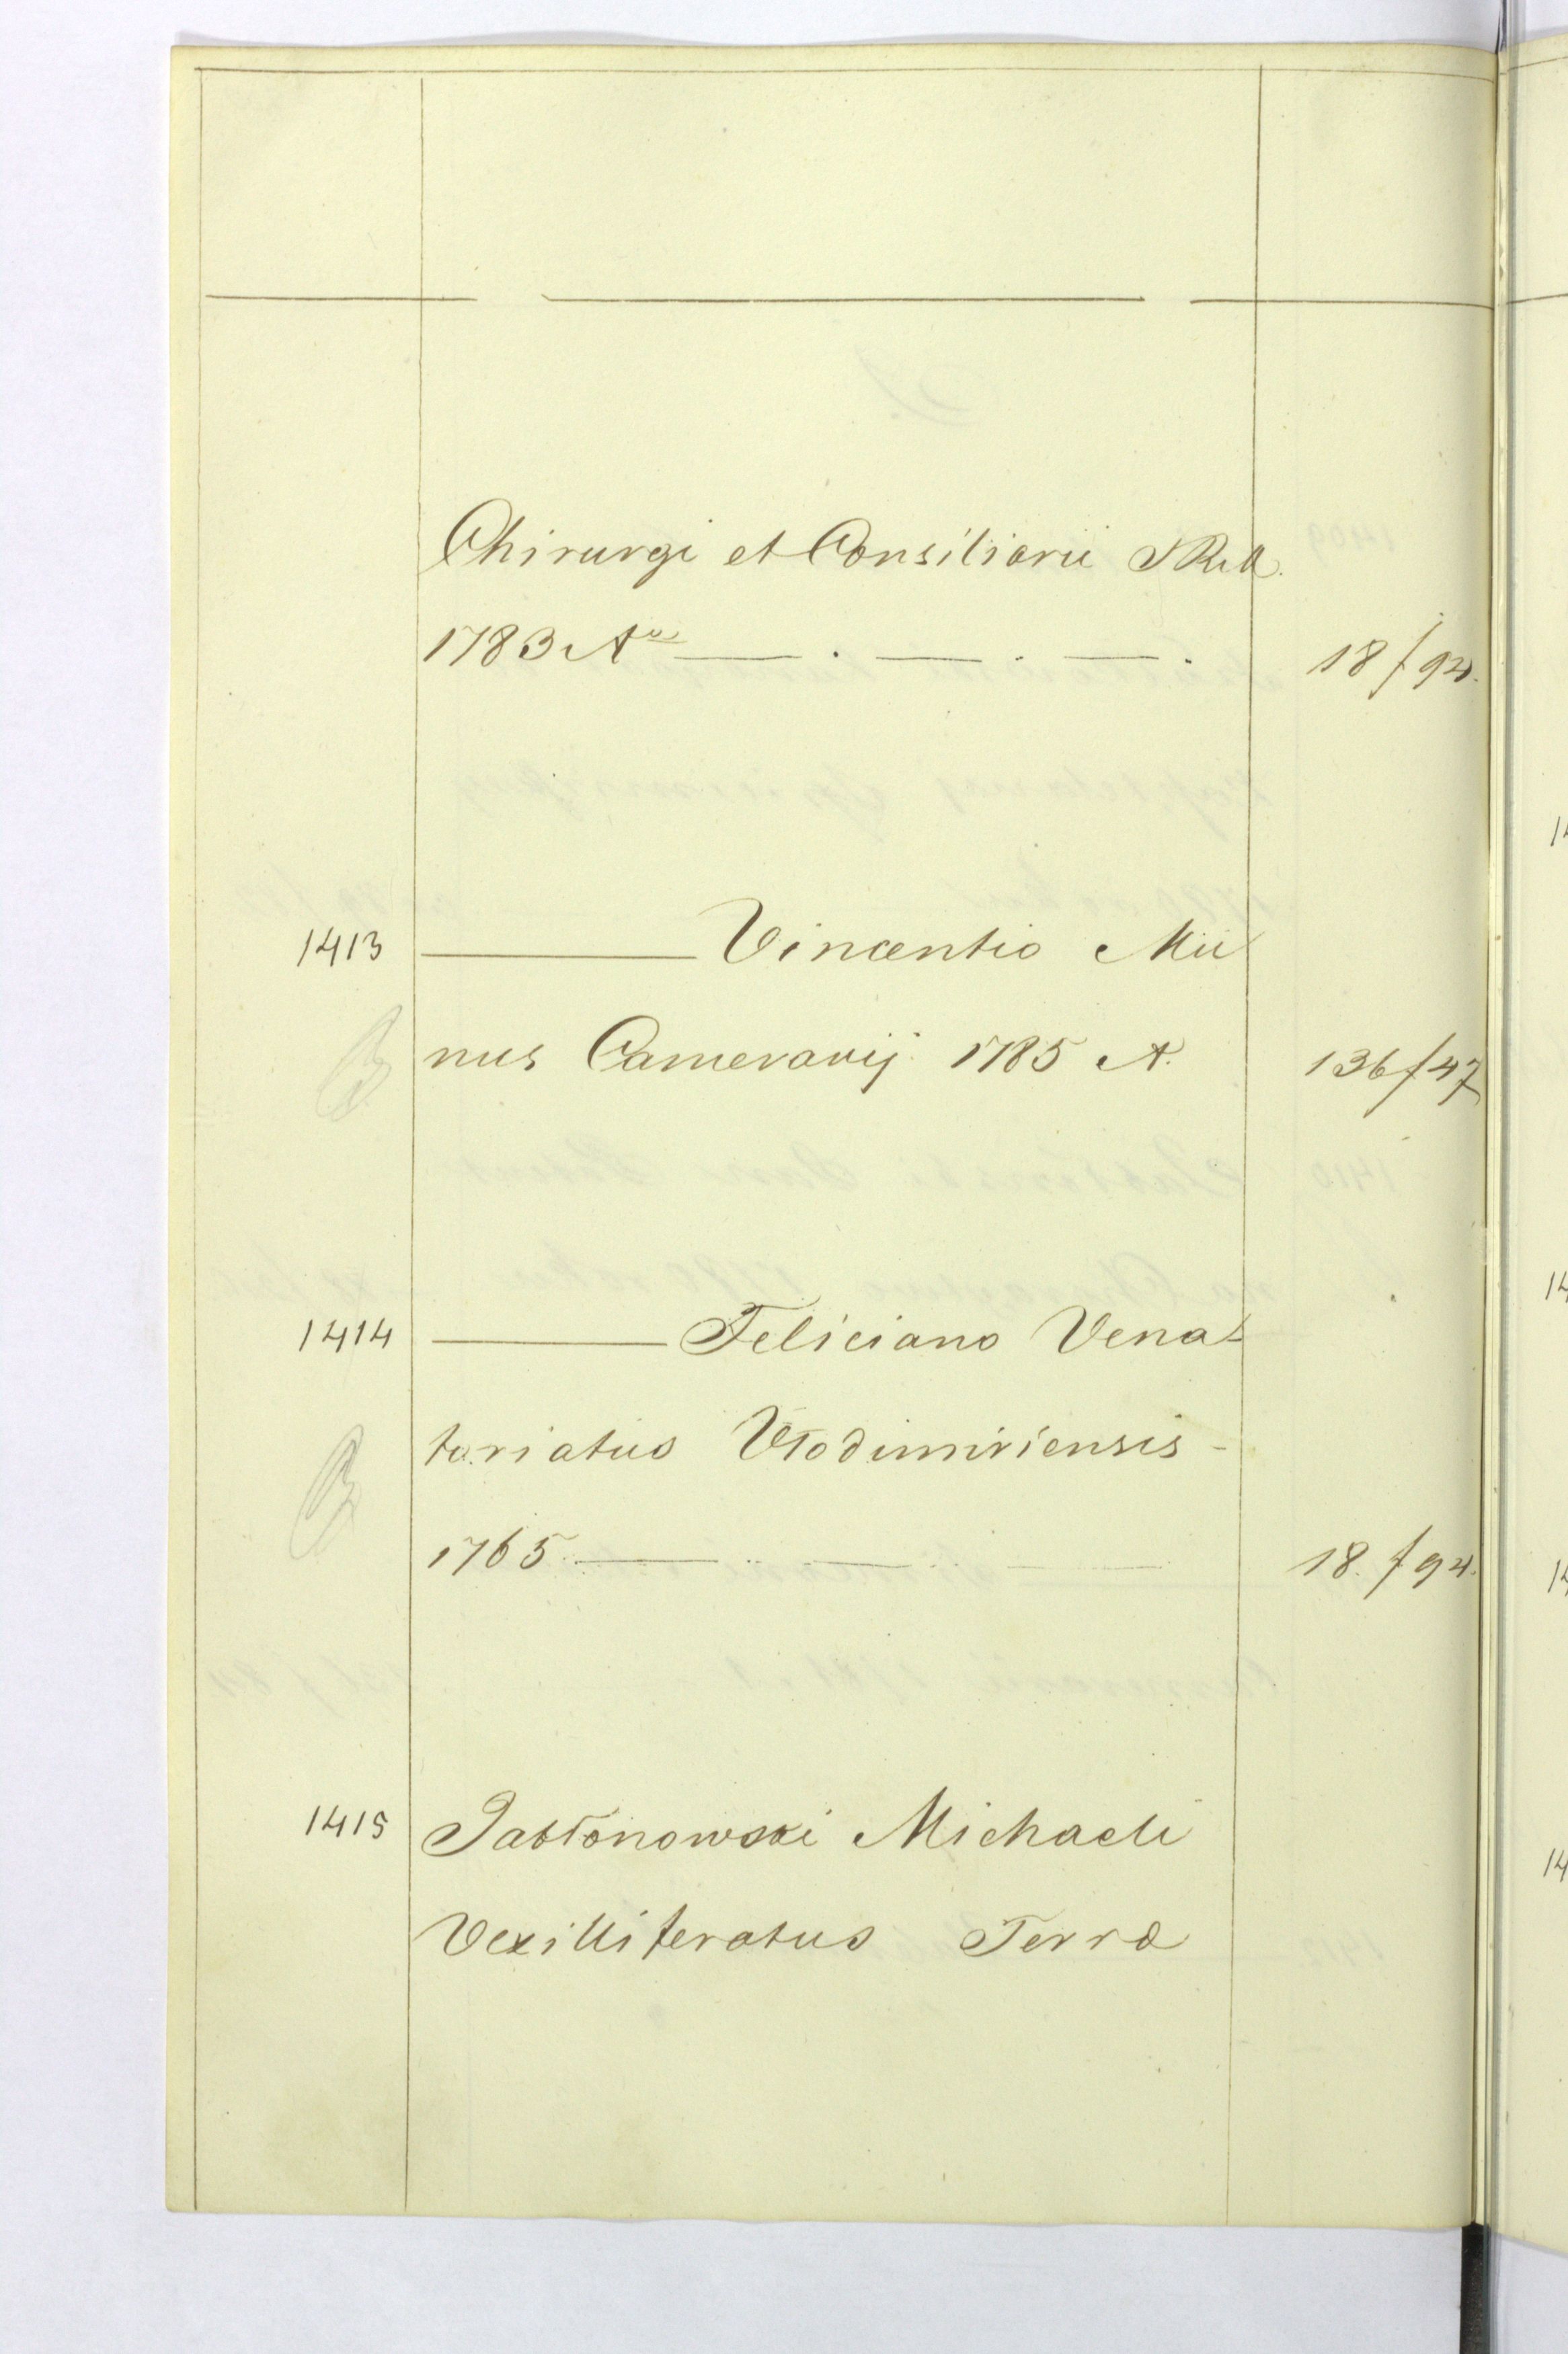 Chirurgi et Consiliarii SRM.
1783 Aº — . — . — . 18/94.
1413 ——— Vincentio Mu
nus Camerarij 1785 A. 136/47
1414 ——— Feliciano Vena
toriatus Włodimiriensis -
1765 — .. — .. — 18./94.
1415 Jabłonowski Michaeli
Vexilliferatus Terræ